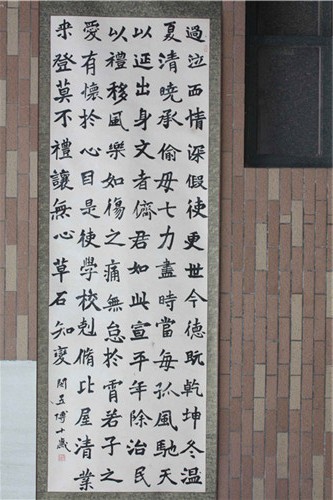 過泣而情深假使更世今德阮乾坤冬溫
夏清曉承偷毋七力盡時當每孤風馳天
以延出身文者儕君如此宣平年除治民
以禮移風樂如傷之痛無怠於霄若子之
愛有懷於心目是使學校剋脩比屋清業
来登莫不禮讓無心草石知變
閔孟博十歲